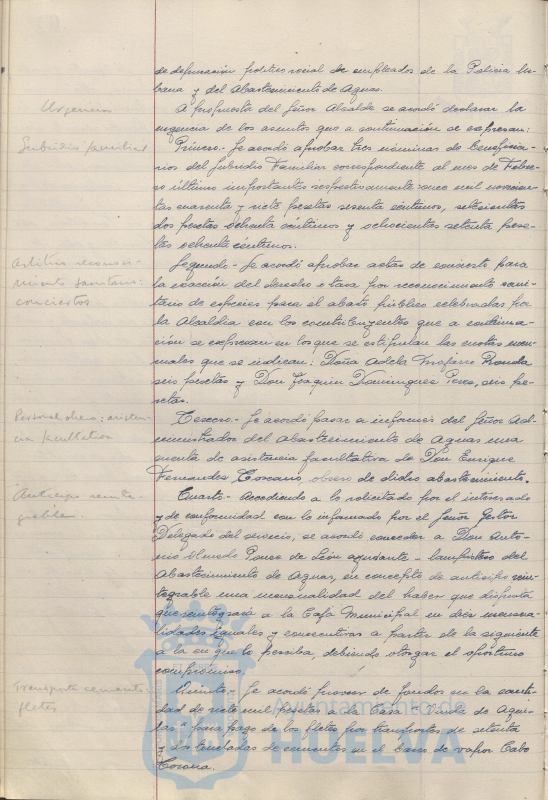 de depuración politico social de empleados de la Policia Ur-
bana y del Abastecimiento de Aguas.
Urgencia
A propuesta del Señor Alcalde se acordó declarar la
urgencia de los asuntos que a continuación se expresan:
Subsidio familiar
Primero.- Se acordó aprobar tres nóminas de beneficia-
rios del Subsidio Familiar correspondiente al mes de Febre-
ro último importantes respectivamente once mil novecien-
tas cuarenta y siete pesetas sesenta céntimos, setecientas
dos pesetas ochenta céntimos y ochocientas setenta pese-
tas ochenta céntimos.
Arbitrio reconoci-
miento sanitario:
conciertos
Segundo.- Se acordó aprobar actas de concierto para
la exacción del derecho o tasa por reconocimiento sani-
tario de especies para el abasto público celebradas por
la Alcaldia con los contribuyentes que a continua-
ción se expresan en los que se estipulan las cuotas men-
suales que se indican: Doña Adela Ronda
seis pesetas y Don Joaquin Dominguez Perez, seis pe-
setas.
Personal obrero: asisten-
cia facultativa
Tercero.- Se acordó pasar a informes del Señor Ad-
ministrador del Abastecimiento de Aguas una
cuenta de asistencia facultativa de Don Enrique
Fernandez obrero de dicho abastecimiento.
Anticipo reinte-
grable
Cuarto.- Accediendo a lo solicitado por el interesado
y de conformidad con lo informado por el Señor Gestor
Delegado del servicio, se acordó conceder a Don Anto-
nio Olmedo Ponce de León ayudante-lampistero del
Abastecimiento de Aguas, en concepto de anticipo rein-
tegrable una mensualidad del haber que disfruta
que reintegrará a la Caja Municipal en diez mensua-
lidades iguales y consecutivas a partir de la siguiente
a la en que lo perciba, debiendo otorgar el oportuno
compromiso.
Transporte cemento:
fletes
Quinto.- Se acordó proveer de fondos en la canti-
dad de siete mil pesetas a la Casa
para pago de los fletes por transportes de setenta
y dos toneladas de cementos en el barco de vapor Cabo
Corona.
Ayuntamiento de
HUELVA